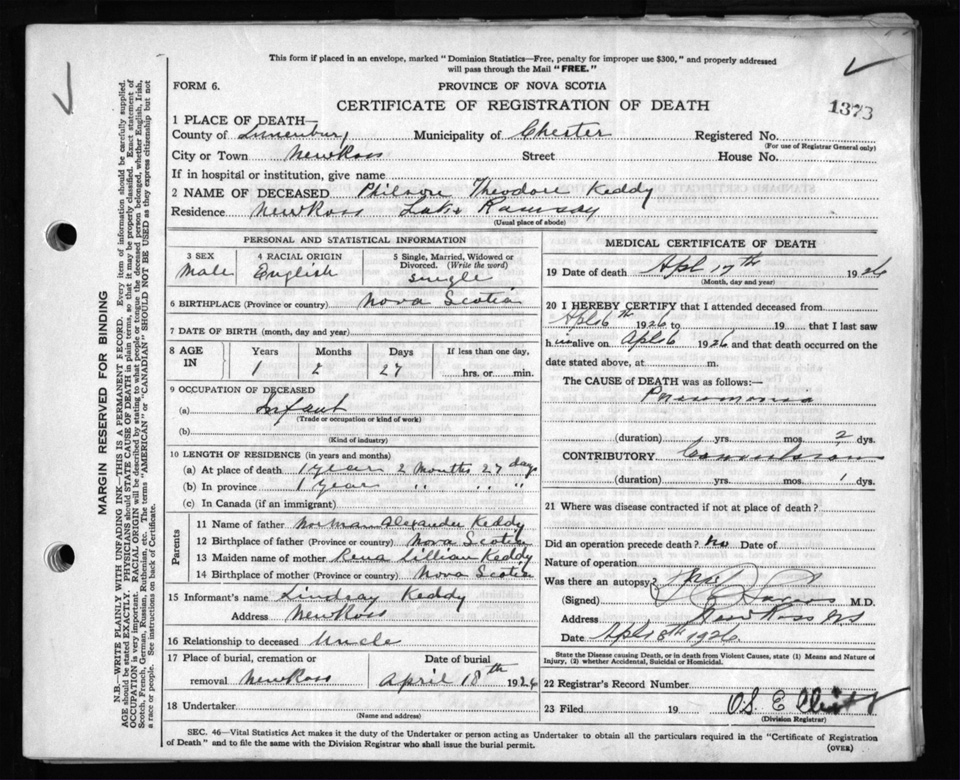 This form if placed in an envelope, marked "Dominion Statistics—Free, penalty for improper use $300," and properly addressed
will pass through the Mail "FREE."
FORM 6.
PROVINCE OF NOVA SCOTIA
CERTIFICATE OF REGISTRATION OF DEATH
1373
1 PLACE OF DEATH—
County of Lunenburg Municipality of Chester Registered No.
(For use of Registrar General only)
City or Town New Ross Street House No.
If in hospital or institution, give name
2 NAME OF DECEASED Theodore Keddy
Residence New Ross Lake Ramsay
(Usual place of abode)
PERSONAL AND STATISTICAL INFORMATION
3 SEX
Male
4 RACIAL ORIGIN
English
5 Single, Married, Widowed or
Divorced. (Write the word)
Single
6 BIRTHPLACE (Province or country) Nova Scotia
7 DATE OF BIRTH (month, day and year)
8 AGE IN
Years Months Days If less than one day,
1 2 27 hrs. or min.
9 OCCUPATION OF DECEASED
(a) Infant
(Trade or occupation or kind of work)
(b)
(Kind of industry)
10 LENGTH OF RESIDENCE (in years and months)
(a) At place of death 1 year 2 months 27 days
(b) In province 1 year " " " "
(c) In Canada (if an immigrant)
Parents
11 Name of father Norman Alexander Keddy
12 Birthplace of father (Province or country) Nova Scotia
13 Maiden name of mother Rena Lillian Keddy
14 Birthplace of mother (Province or country) Nova Scotia
15 Informant's name Lindsay Keddy
Address New Ross
16 Relationship to deceased Uncle
17 Place of burial, cremation or
removal New Ross
Date of burial
April 18th 1926
18 Undertaker
(Name and address)
MEDICAL CERTIFICATE OF DEATH
19 Date of death Apl 17th 1926
(Month, day and year)
20 I HEREBY CERTIFY that I attended deceased from
Apl 16th 1926 to 19 that I last saw
him alive on Apl 16 1926 and that death occurred on the
date stated above, at m.
The CAUSE of DEATH was as follows:—
Pneumonia
(duration) yrs. mos. 2 dys.
CONTRIBUTORY Convulsions
(duration) yrs. mos. 1 dys.
21 Where was disease contracted if not at place of death?
Did an operation precede death? no Date of
Nature of operation
Was there an autopsy?
(Signed) M.D.
Address New Ross NS
Date Apl 18th 1926
State the Disease causing Death, or in death from Violent Causes, state (1) Means and Nature of
Injury, (2) whether Accidental, Suicidal or Homicidal.
22 Registrar's Record Number
23 Filed 19
(Division Registrar)
SEC. 46—Vital Statistics Act makes it the duty of the Undertaker or person acting as Undertaker to obtain all the particulars required in the "Certificate of Registration
of Death" and to file the same with the Division Registrar who shall issue the burial permit.
(OVER)
MARGIN RESERVED FOR BINDING
N.B.—WRITE PLAINLY WITH UNFADING INK—THIS IS A PERMANENT RECORD. Every item of information should be carefully supplied.
AGE should be stated EXACTLY. PHYSICIANS should STATE CAUSE OF DEATH in plain terms, so that it may be properly classified. Exact statement of
OCCUPATION is very important. RACIAL ORIGIN will be described by stating to what people or tongue the deceased person belonged, whether English, Irish,
Scotch, French, German, Russian, Ruthenian, etc. The terms "AMERICAN" or "CANADIAN" SHOULD NOT BE USED as they express citizenship but not
a race or people. See instructions on back of Certificate.